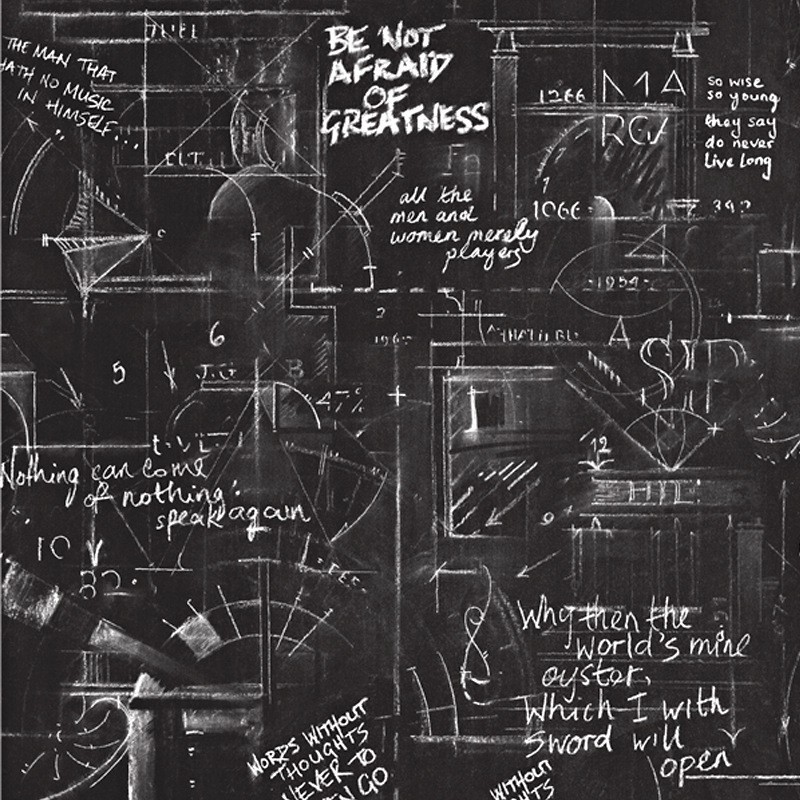 THE MAN THAT
HATH NO MUSIC
IN HIMSELF...
BE NOT
AFRAID
OF
GREATNESS
so wise
so young
they say
do never
live long
1266
MA
1066
all the
men and
women merely
players
1954
A
6
5
J.G
B
47%
SIP
12
Nothing can come
of nothing:
speak again
10
32.
Why then the
world's mine
oyster,
Which I with
sword will
open
WORDS WITHOUT
THOUGHTS
NEVER TO
GO
WITHOUT